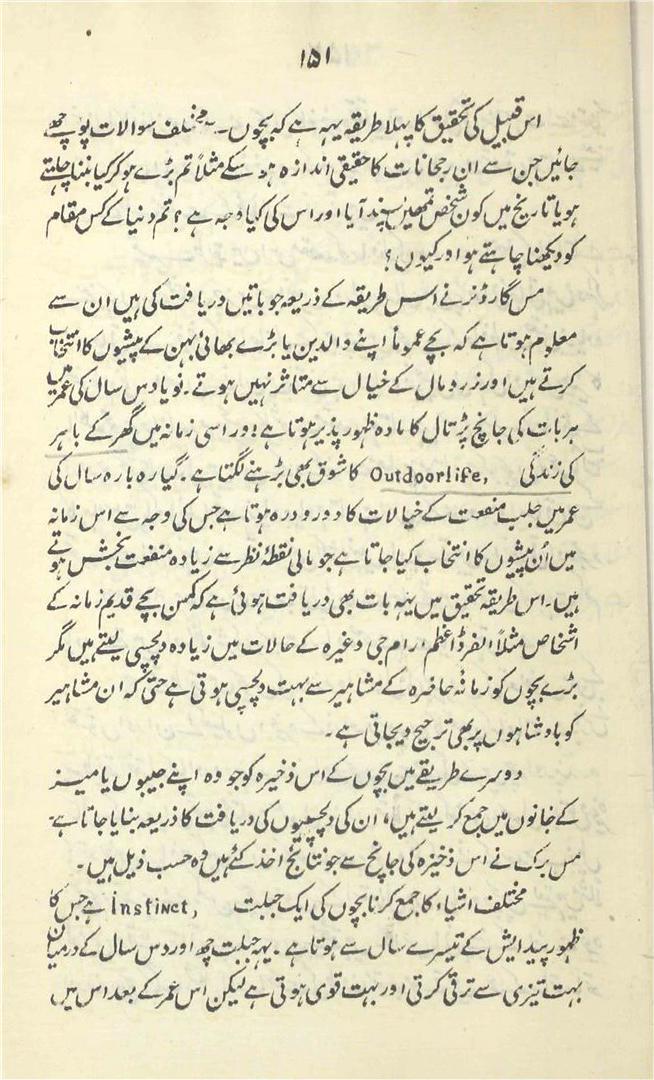 ۱۵۱
اس قبیل کی تحقیق کا پہلا طریقہ یہہ ہے کہ بچوں۔ سے مختلف سوالات پوچھے
جائیں جن سے ان رجحانات کا حقیقی اندازہ ہو سکے مثلاً تم بڑے ہو کر کیا بننا چاہتے
ہو یا تاریخ میں کون شخص تمھیں پسند آیا اور اس کی کیا وجہ ہے؟ تم دنیا کے کس مقام
کو دیکھنا چاہتے ہو اور کیوں؟
مس گارڈنر نے اس طریقہ کے ذریعہ جو باتیں دریافت کی ہیں ان سے
معلوم ہوتا ہے کہ بچے عموماً اپنے والدین یا بڑے بھائی بہن کے پیشوں کا انتخاب
کرتے ہیں اور زر و مال کے خیال سے متاثر نہیں ہوتے۔ نو یا دس سال کی عمر میں
ہر بات کی جانچ پڑتال کا مادہ ظہور پذیر ہوتا ہے؛ اور اسی زمانہ میں گھر کے باہر
کی زندگی Outdoorlife, کا شوق بھی بڑہنے لگتا ہے۔ گیارہ بارہ سال کی
عمر میں جلب منفعت کے خیالات کا دور دورہ ہوتا ہے جس کی وجہ سے اس زمانہ
میں اُن پیشوں کا انتخاب کیا جاتا ہے جو مالی نقطۂ نظر سے زیادہ منفعت بخش ہوتے
ہیں۔ اس طریقہ تحقیق میں یہہ بات بھی دریافت ہوئی ہے کہ کمسن بچے قدیم زمانہ کے
اشخاص مثلاً الفرڈ اعظم، رام جی وغیرہ کے حالات میں زیادہ دلچسپی لیتے ہیں مگر
بڑے بچوں کو زمانۂ حاضرہ کے مشاہیر سے بہت دلچسپی ہوتی ہے حتیٰ کہ ان مشاہیر
کو بادشاہوں پر بھی ترجیح دیجاتی ہے۔
دوسرے طریقے میں بچوں کے اس ذخیرہ کو جو وہ اپنے جیبوں یا میز
کے خانوں میں جمع کر لیتے ہیں، ان کی دلچسپیوں کی دریافت کا ذریعہ بنایا جاتا ہے۔
مس برک نے اس ذخیرہ کی جانچ سے جو نتائج اخذ کئے ہیں وہ حسب ذیل ہیں۔
مختلف اشیاء کا جمع کرنا بچوں کی ایک جبلت Instinct, ہے جس کا
ظہور پیدایش کے تیسرے سال سے ہوتا ہے۔ یہہ جبلت چھ اور دس سال کے درمیان
بہت تیزی سے ترقی کرتی اور بہت قوی ہوتی ہے لیکن اس عمر کے بعد اس میں